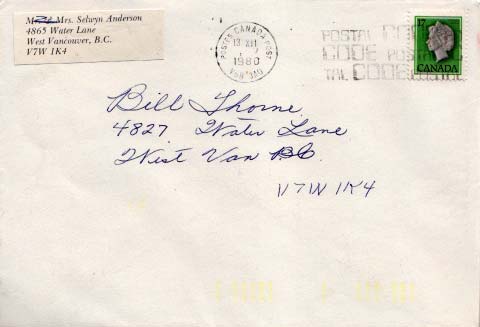 Mrs. Selwyn Anderson
4865 Water Lane
West Vancouver, B.C.
V7W 1K4
POSTES CANADA POST
13 XII
1980
POSTAL CODE
CODE POSTAL
TAL CODE
17
CANADA
Bill Thorne
4827 Water Lane
West Van BC
V7W 1K4